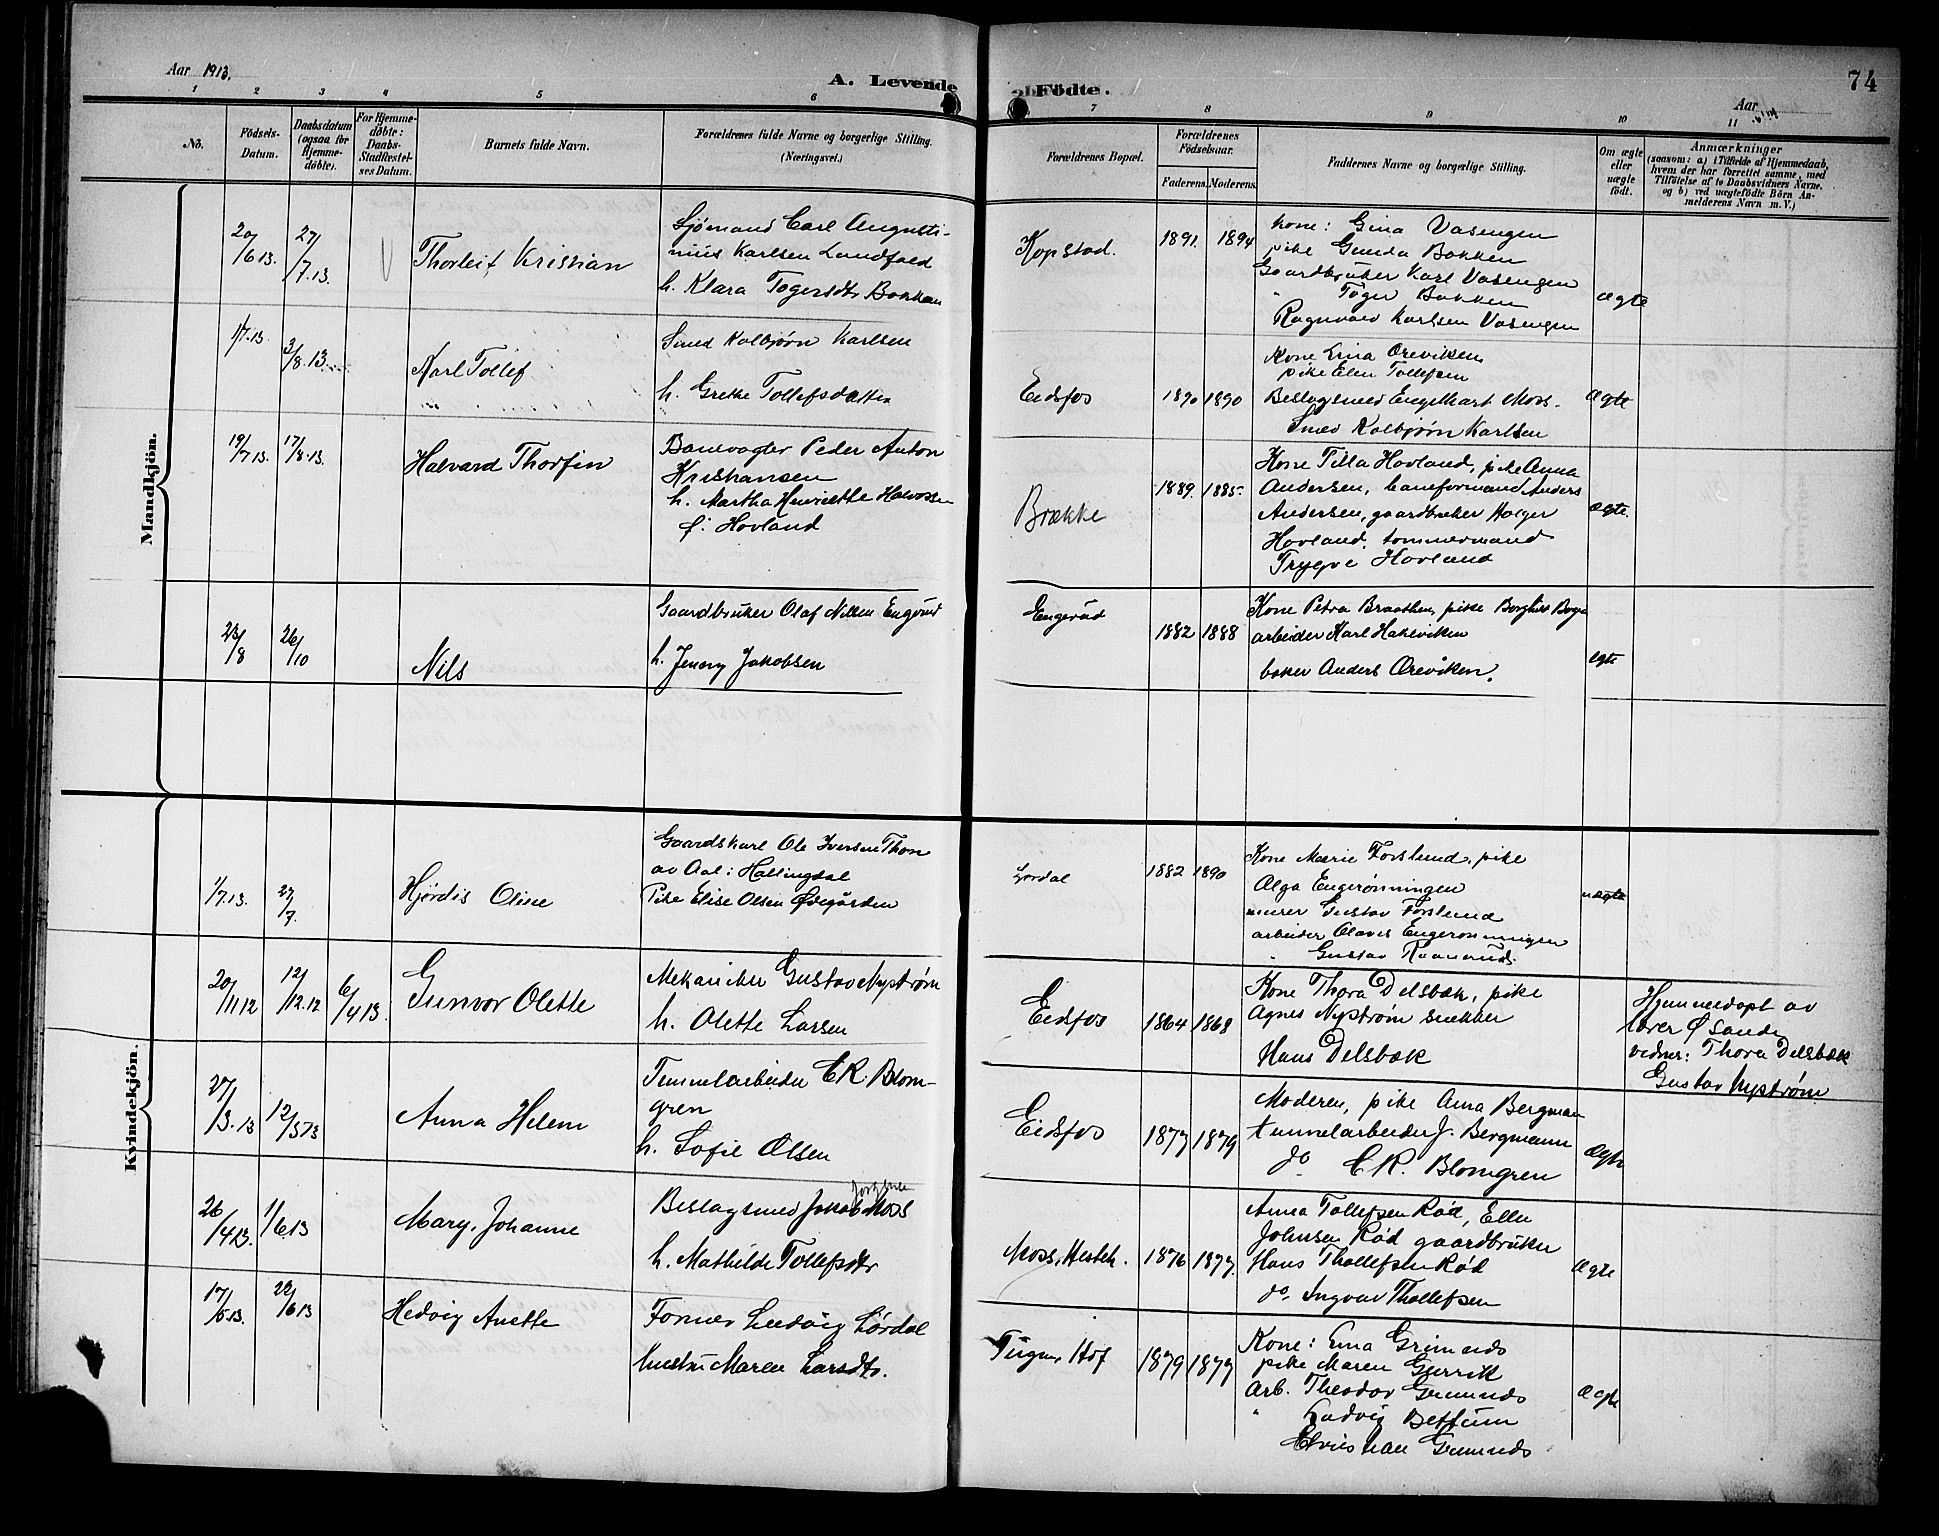 Aar 1913.
A. Levende Födte.
74
Aar
1 2 3 4 5 6 7 8 9 10 11
No.
Födsels-
Datum.
Daabsdatum
(ogsaa for
Hjemme-
döbte).
For Hjemme-
döbte:
Daabs-
Stadfæstel-
ses Datum.
Barnets fulde Navn.
Forældrenes fulde Navne og borgerlige Stilling.
(Næringsvei.)
Forældrenes Bopæl.
Forældrenes
Födselsaar.
Faderens. Moderens.
Faddernes Navne og borgerlige Stilling.
Om ægte
eller
uægte
født.
Anmærkninger
(saasom: a) i Tilfælde af Hjemmedaab,
hvem der har forrettet samme, med
Tilföielse af to Daabsvidners Navne.
og b) ved uægtefödte Börn An-
melderens Navn m. V.)
Mandkjön.
20/6 13. 27/7.13. Thorleif Kristian
Sjømand Carl Augusti-
nius Karlsen Lundfald
h. Klara Togersdtr Bakken
Kopstad. 1891. 1894
Kone: Gina Vasengen
pike Gunda Bakken
Gaardbruker Karl Vasengen
" Toger Bakken
Ragnvald Karlsen Vasengen
ægte
1/7.13. 3/8.13. Karl Tollef
Smed Kolbjørn Karlsen
h. Grethe Tollefsdatter
Eidsfos 1890 1890
Kone Lina Oreviken
pike Ellen Tollefsen
Beslagsmed Engelhart Moss.
Smed Kolbjørn Karlsen
Ægte
19/7 13. 17/8.13. Halvard Thorfin
Banevogter Peder Anton
Kristiansen
h. Martha Henriette Halvorsen
f: Hovland
Brække 1889. 1885.
Kone Tilla Hovland, pike Anna
Andersen, baneformand Anders
Andersen, gaardbruker Holger
Hovland, tømmermand
Trygve Hovland
ægte.
23/8 26/10 Nils
Gaardbruker Olaf Nilsen Engerud
h. Jenny Jakobsen
Engerud 1882 1888
Kone Petra Braathen, pike Borghild
arbeider Karl Hakeviken
baker Anders Oreviken.
ægte
Kvindekjön.
1/7.13. 27/7. Hjørdis Oline
Gaardskarl Ole Iversen Thon
av Aal i Hallingdal
Pike Elise Olsen Ødegården
Lørdal 1882 1890
Kone Marie Forslund, pike
Olga Engerønningen
murer Gustav Forslund
arbeider Olaves Engerønningen
" Gustav
uægte
20/11 12 12/12.12 6/4 13. Gunvor Olette
Mekaniker Gustav Nystrøm
h. Olette Larsen
Eidsfos 1864 1868
Kone Thora Delsbæk, pike
Agnes Nystrøm snekker
Hans Delsbæk
Hjemmedøpt av
lærer Øsande
vidner: Thora Delsbæk
Gustav Nystrøm
27/3.13 12/5 13 Anna Helene
Tunnelarbeider C.R. Blom-
gren
h. Sofie Olsen
Eidsfos 1877 1879
Moderen, pike Anna Bergman
tunnelarbeider J. Bergmann
do C.R. Blomgren
Ægte
26/4 13. 1/6 13 Mary Johanne
Beslagsmed Jakob Moss
h. Mathilde Tollefsdtr
Moss, Hesteh. 1876 1877.
Anna Tollefsen Rød, Ellen
Johnsen Rød gaardbruker
Hans Thollefsen Rød
do. Ingvar Thollefsen
Ægte
17/5.13. 22/6 13 Hedvig Anette
Former Ludvig Lørdal
hustru Maren Larsdtr.
Tugn, Hof 1879 1877
Kone: Lina Grimnds
pike Maren Gjerrik
arb. Theodor Grimnds
" Ludvig Bettum
Christian Grimnds
Ægte